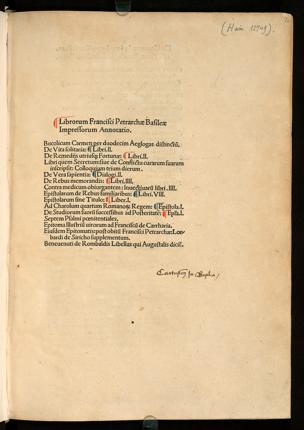 (Hain 12749)
Librorum Francisci Petrarchæ Basileæ
Impressorum Annotatio.
Bucolicum Carmen per duodecim Aeglogas distinctū.
De Vita solitaria: Libri.II.
De Remediis utriusq; Fortunæ: Libri.II.
Libri quem Secretum: siue de Conflictu curarum suarum
inscripsit: Colloquium trium dierum.
De Vera sapientia: Dialogi.II.
De Rebus memorandis: Libri.IIII.
Contra medicum obiurgantem: Inuectiuarū libri.IIII.
Epistolarum de Rebus familiaribus: Libri.VIII.
Epistolarum sine Titulo: Liber.I.
Ad Charolum quartum Romanorū Regem: Epistola.I.
De Studiorum suorū successibus ad Posteritatē: Epl̄a.I.
Septem Psalmi pœnitentiales.
Epitoma Illustriū uirorum ad Franciscū de Carraria.
Eiusdem Epitomatis post obitū Francisci Petrarchæ: Lom-
bardi de Siricho supplementum.
Beneuenuti de Rombaldis Libellus qui Augustalis dicit̄.